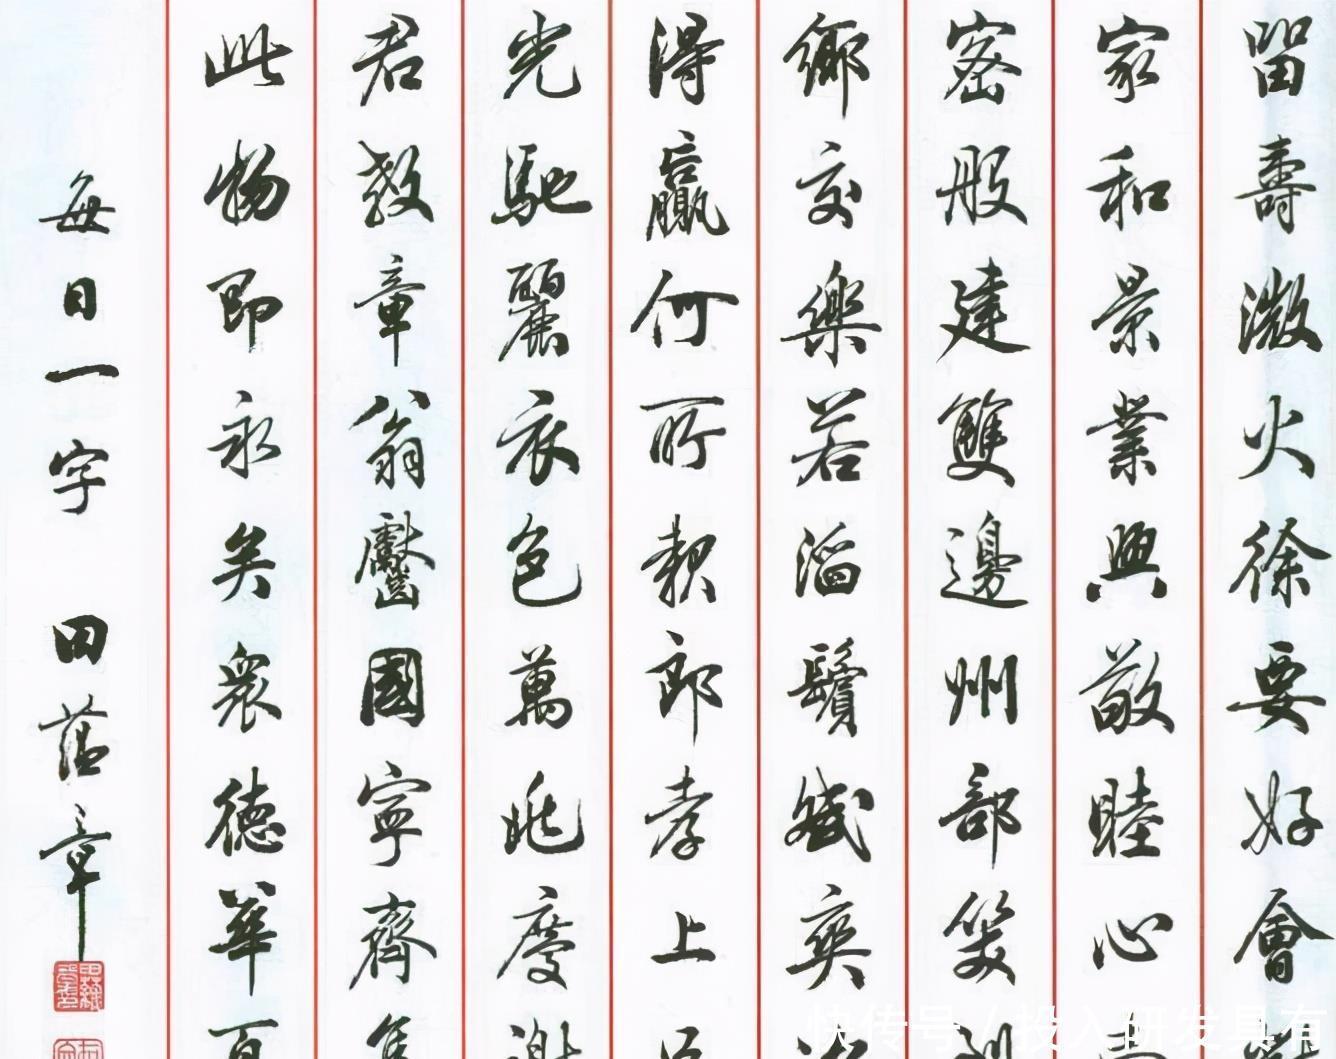 留壽激火徐要好會
家和景業興敬睦心
密般建雙邊州部笑
鄉交樂若滔鬢斌奕
得贏何所親郎孝上
光馳麗衣色萬兆慶謝
君教章翁齾國寧齊隻
此物即永矣眾德華百
每日一字 田蕴章
快传号/投入研发具有